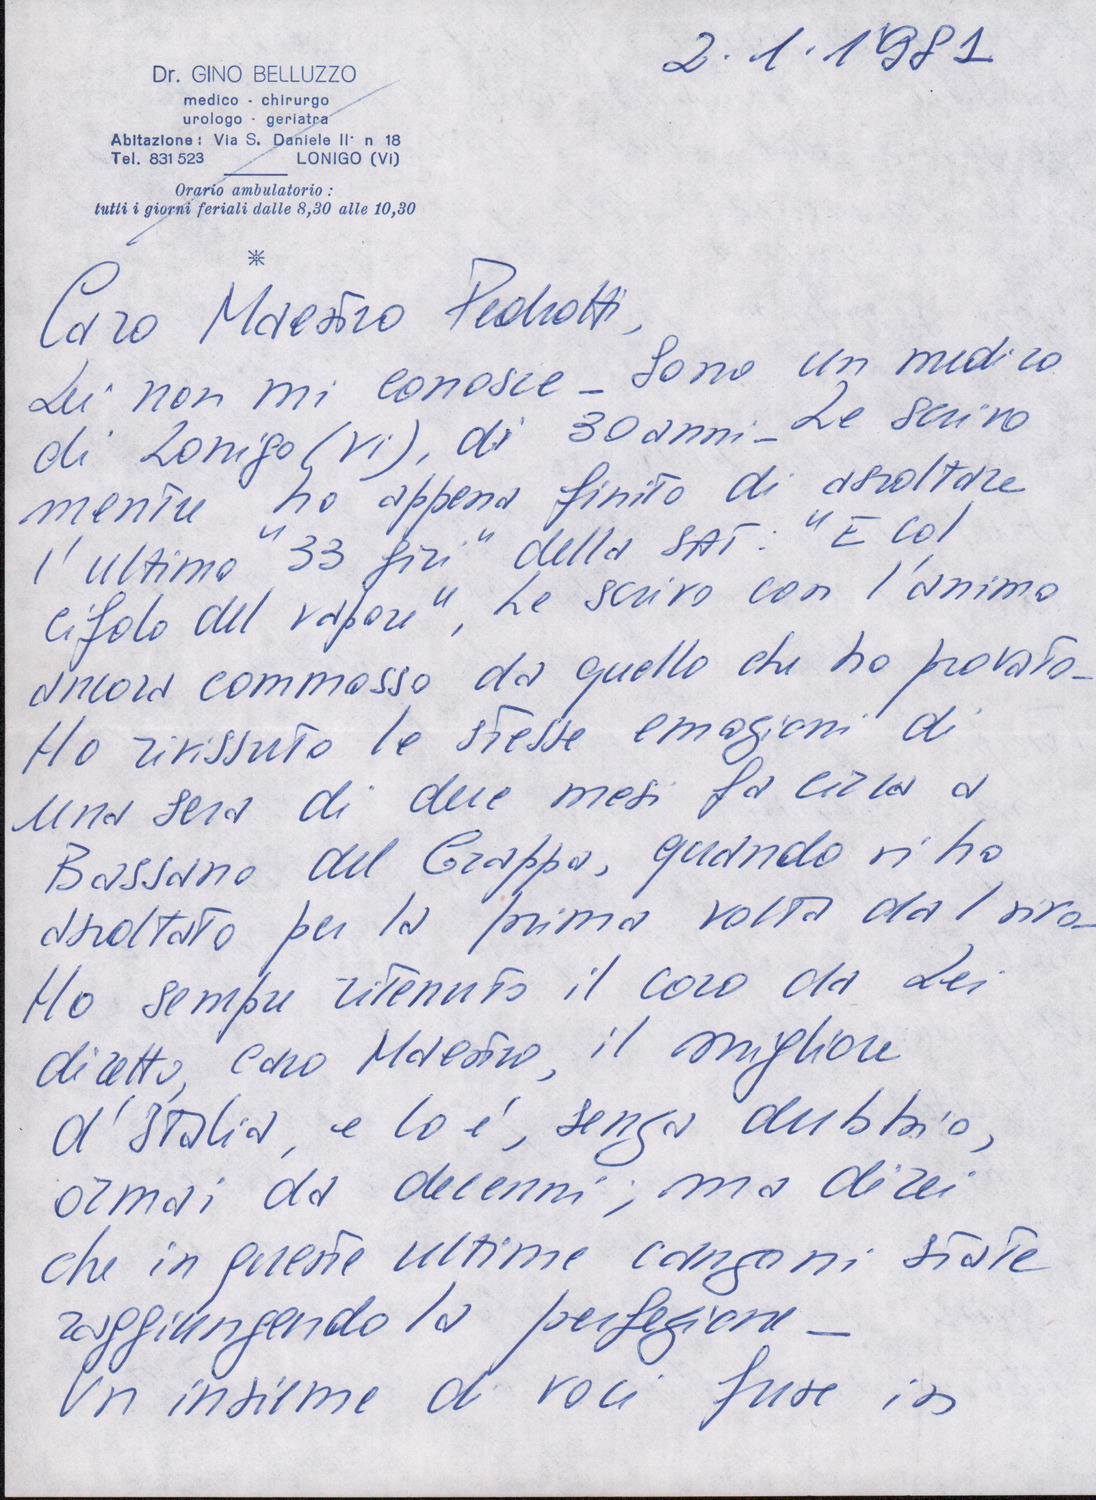 2.1.1981
Dr. GINO BELLUZZO
medico - chirurgo
urologo - geriatra
Abitazione: Via S. Daniele II° n 18
Tel. 831523 LONIGO (Vi)
Orario ambulatorio:
tutti i giorni feriali dalle 8,30 alle 10,30
Caro Maestro Pedrotti,
Lei non mi conosce - Sono un medico
di Lonigo (Vi), di 30 anni - Le scrivo
mentre ho appena finito di ascoltare
l'ultimo "33 giri" della SAT: "E col
cifolo del vapore", Le scrivo con l'animo
ancora commosso da quello che ho provato -
Ho rivissuto le stesse emozioni di
una sera di due mesi fa circa a
Bassano del Grappa, quando vi ho
ascoltato per la prima volta dal vivo -
Ho sempre ritenuto il coro da Lei
diretto, caro Maestro, il migliore
d'Italia, e lo é, senza dubbio,
ormai da decenni; ma direi
che in queste ultime canzoni state
raggiungendo la perfezione -
Un insieme di voci fuse in